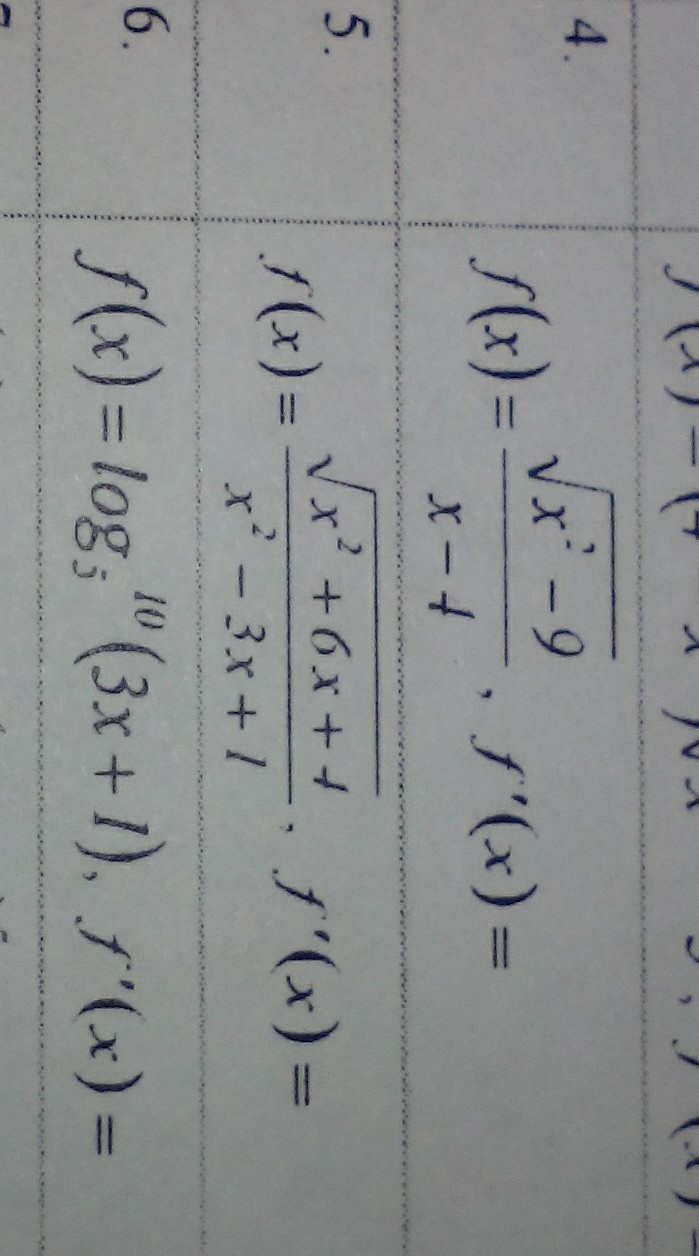 4. f(x) = √(x² − 9) / (x − 4), f'(x) =
5. f(x) = √(x² + 6x + 4) / (x² − 3x + 1), f'(x) =
6. f(x) = log₅¹⁰(3x + 1), f'(x) =